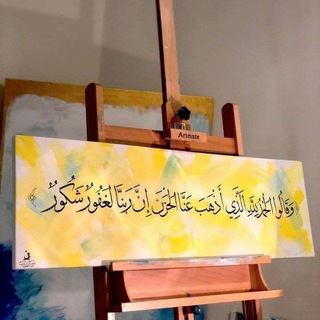 وَقَالُوا الْحَمْدُ لِلَّهِ الَّذِي أَذْهَبَ عَنَّا الْحَزَنَ إِنَّ رَبَّنَا لَغَفُورٌ شَكُورٌ
Artmate